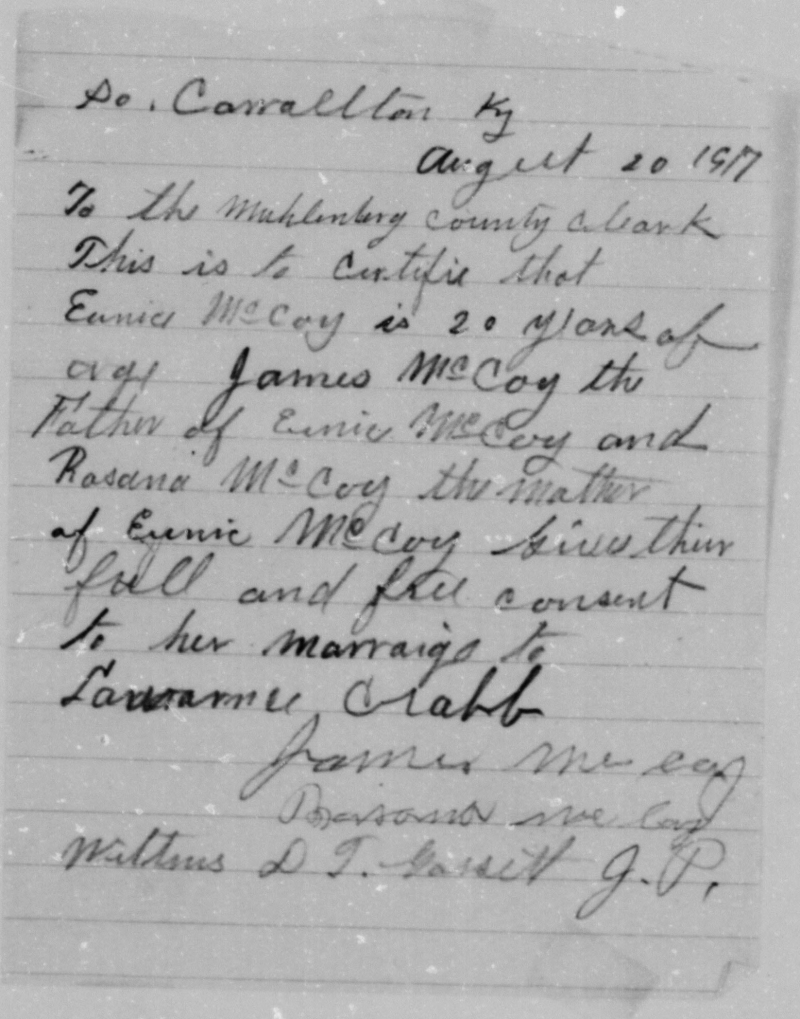 So. Carrallton Ky
August 20 1917
To the Muhlenberg county cleark
This is to certifie that
Eunice McCoy is 20 years of
age James McCoy the
Father of Eunie McCoy and
Rosana McCoy the mother
of Eunie McCoy Gives thier
full and free consent
to her marraige to
Lawrance Crabb
James McCoy
Rosana McCoy
Wittnus D T. J. P.